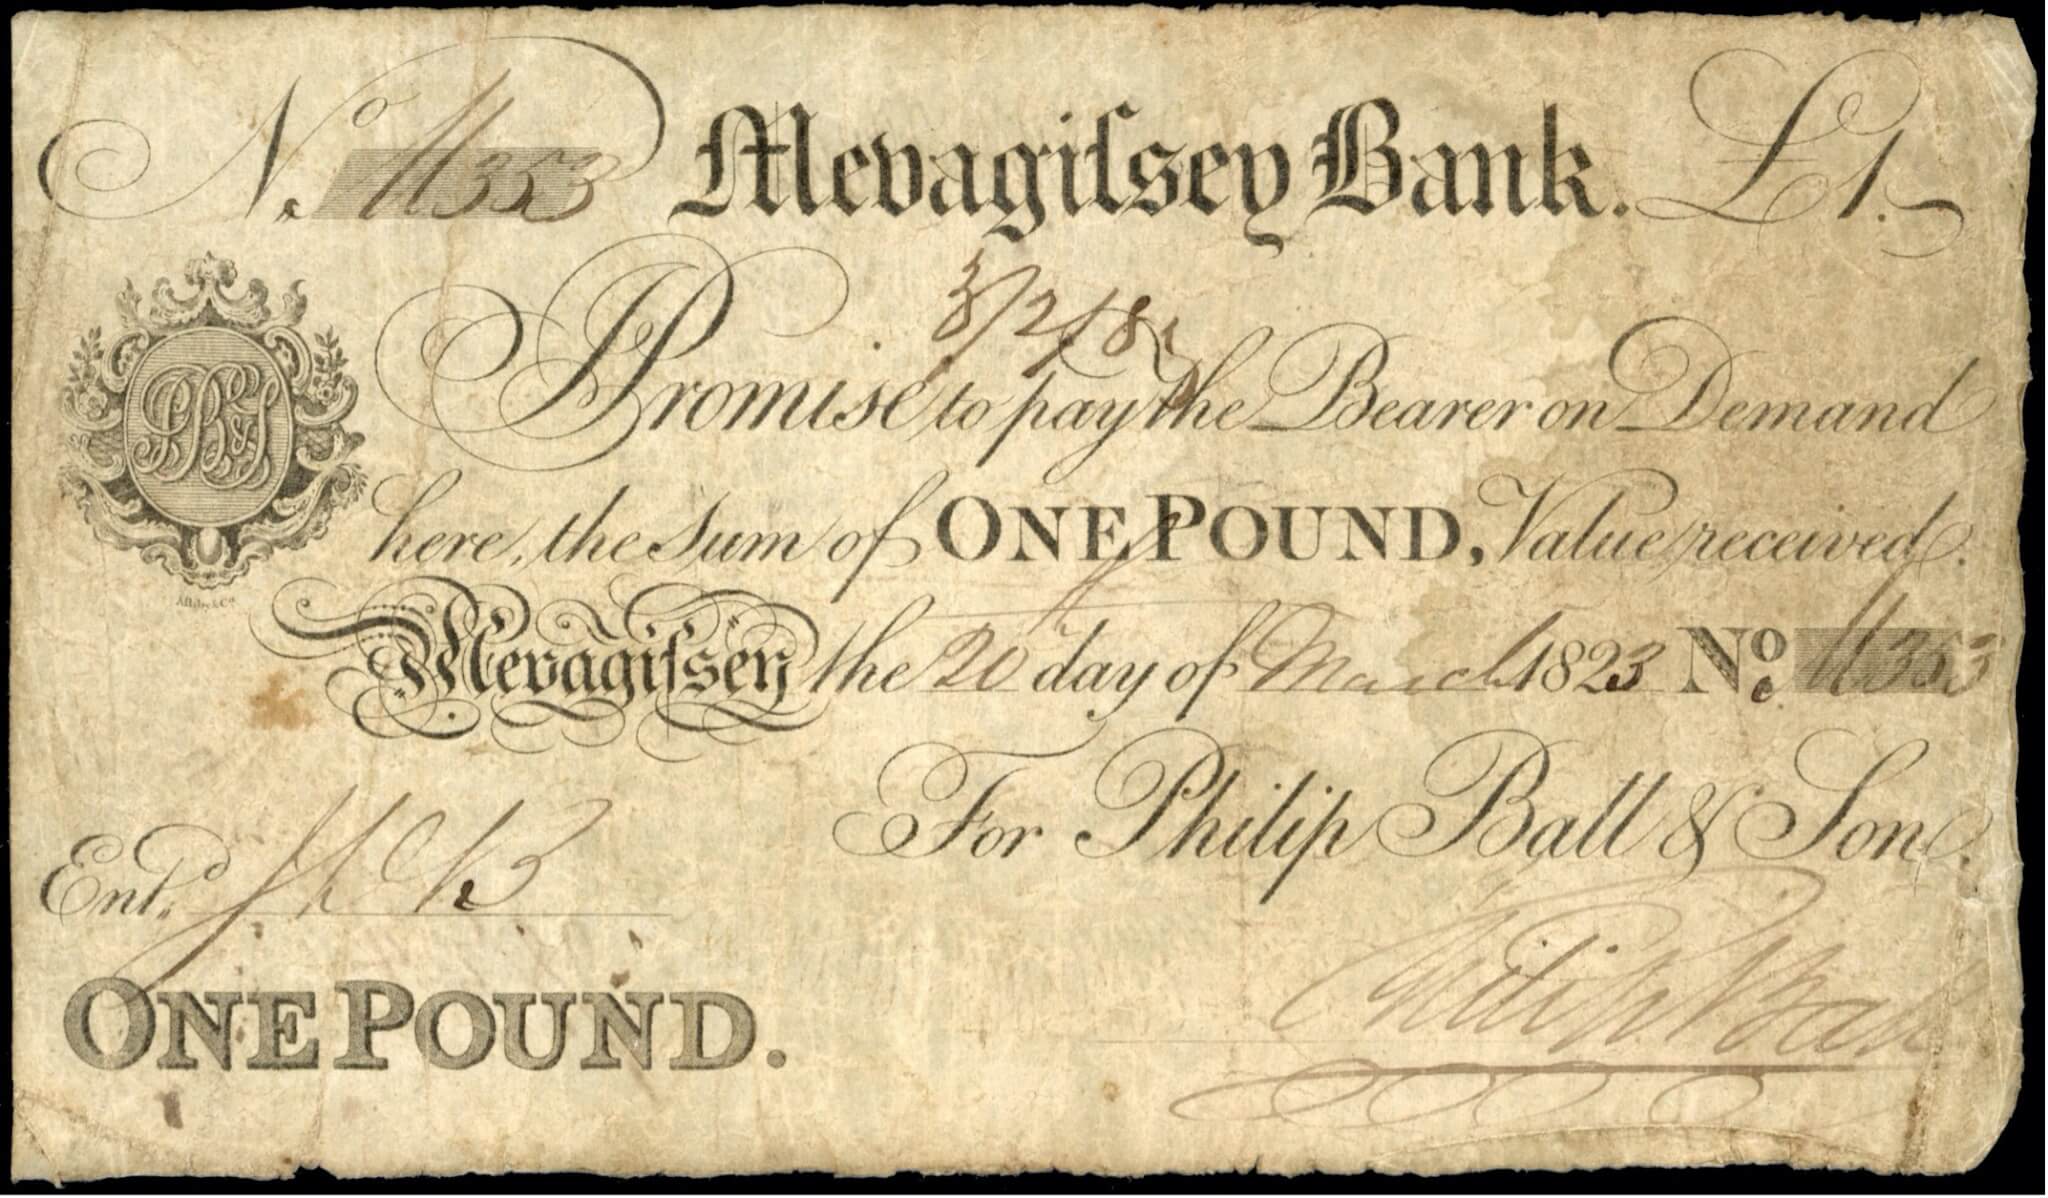 No. 11353 Mevagiſsey Bank. £1.
Promise to pay the Bearer on Demand
here, the Sum of ONE POUND, Value received.
PB&S
Allsby & Co
Mevagiſsey the 20 day of March 1823 No. 11353
For Philip Ball & Son.
Entd.
Philip Ball
ONE POUND.